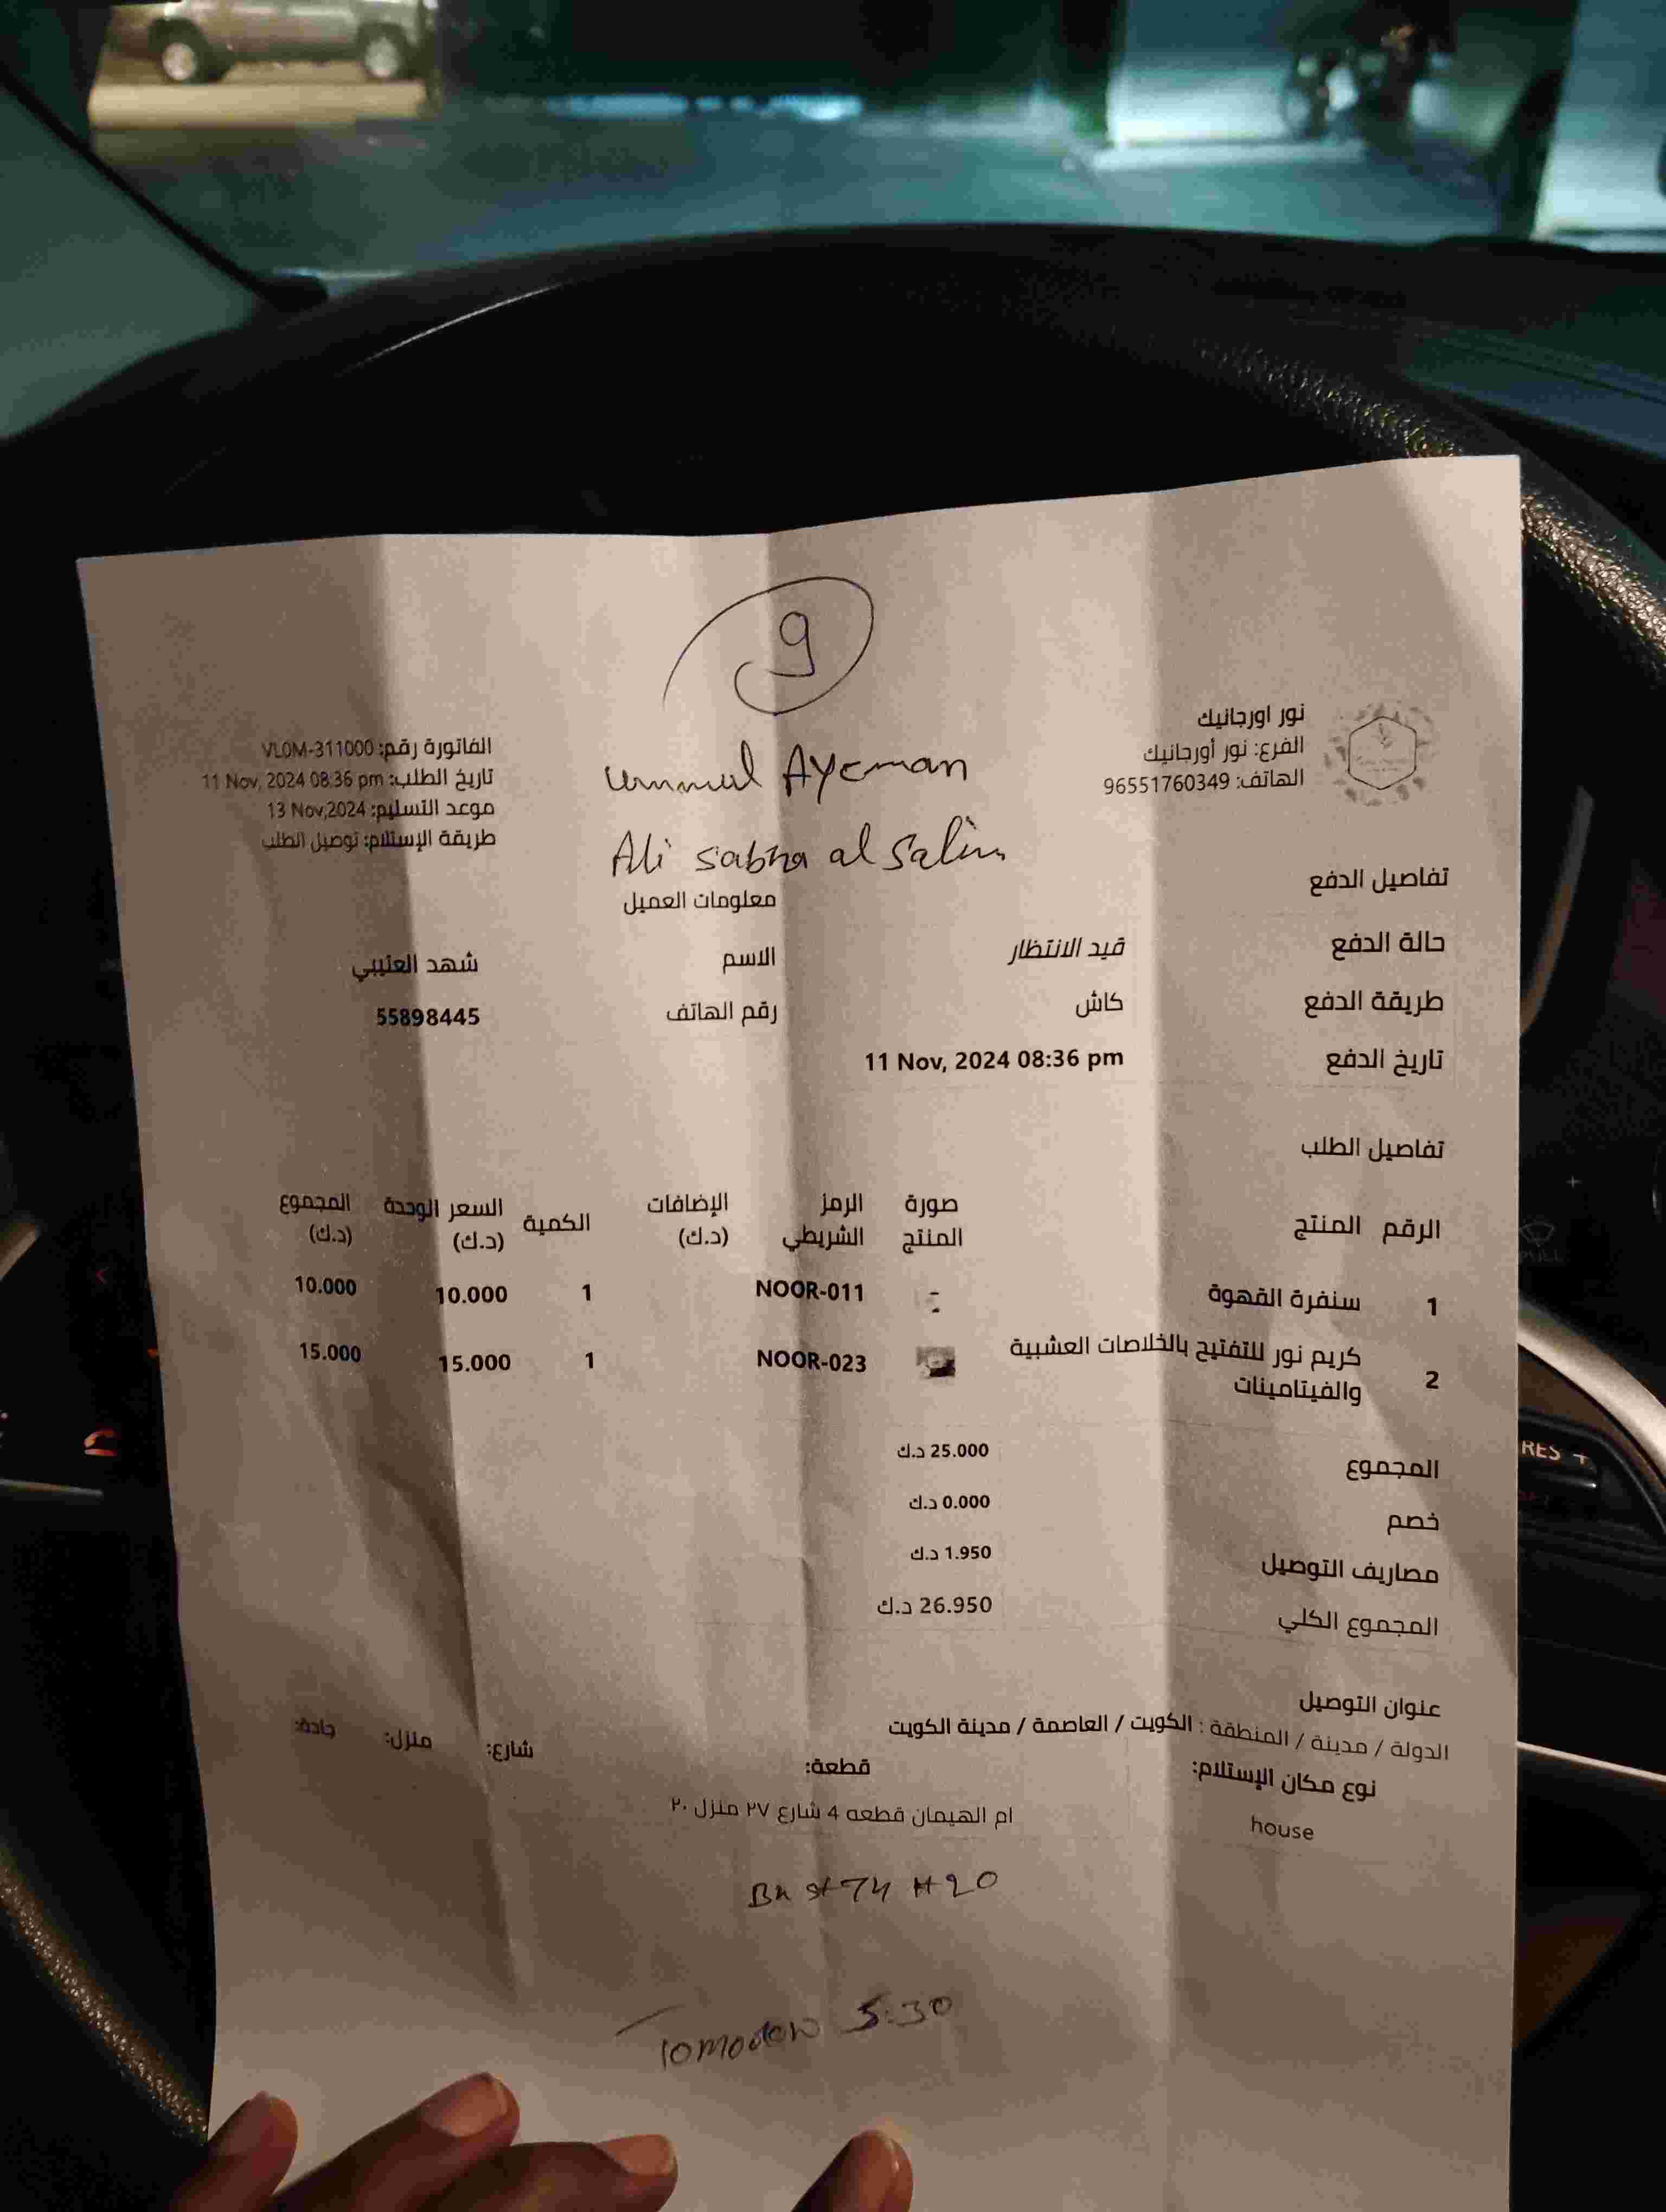 9
نور اورجانيك
الفرع: نور أورجانيك
الهاتف: 96551760349
ummul Ayeman
Ali sabha al Salim
الفاتورة رقم: VLOM-311000
تاريخ الطلب: 11 Nov, 2024 08:36 pm
موعد التسليم: 13 Nov,2024
طريقة الإستلام: توصيل الطلب
تفاصيل الدفع
حالة الدفع قيد الانتظار
طريقة الدفع كاش
تاريخ الدفع 11 Nov, 2024 08:36 pm
معلومات العميل
الاسم شهد العتيبي
رقم الهاتف 55898445
تفاصيل الطلب
الرقم المنتج صورة المنتج الرمز الشريطي الإضافات (د.ك) الكمية السعر الوحدة (د.ك) المجموع (د.ك)
1 سنفرة القهوة NOOR-011 1 10.000 10.000
2 كريم نور للتفتيح بالخلاصات العشبية NOOR-023 1 15.000 15.000
والفيتامينات
المجموع 25.000 د.ك
خصم 0.000 د.ك
مصاريف التوصيل 1.950 د.ك
المجموع الكلي 26.950 د.ك
عنوان التوصيل
الدولة / مدينة / المنطقة : الكويت / العاصمة / مدينة الكويت
نوع مكان الإستلام: قطعة: شارع: منزل: جادة:
house ام الهيمان قطعه 4 شارع ٢٧ منزل ٢٠
st 74 H 20
5:30
RES +